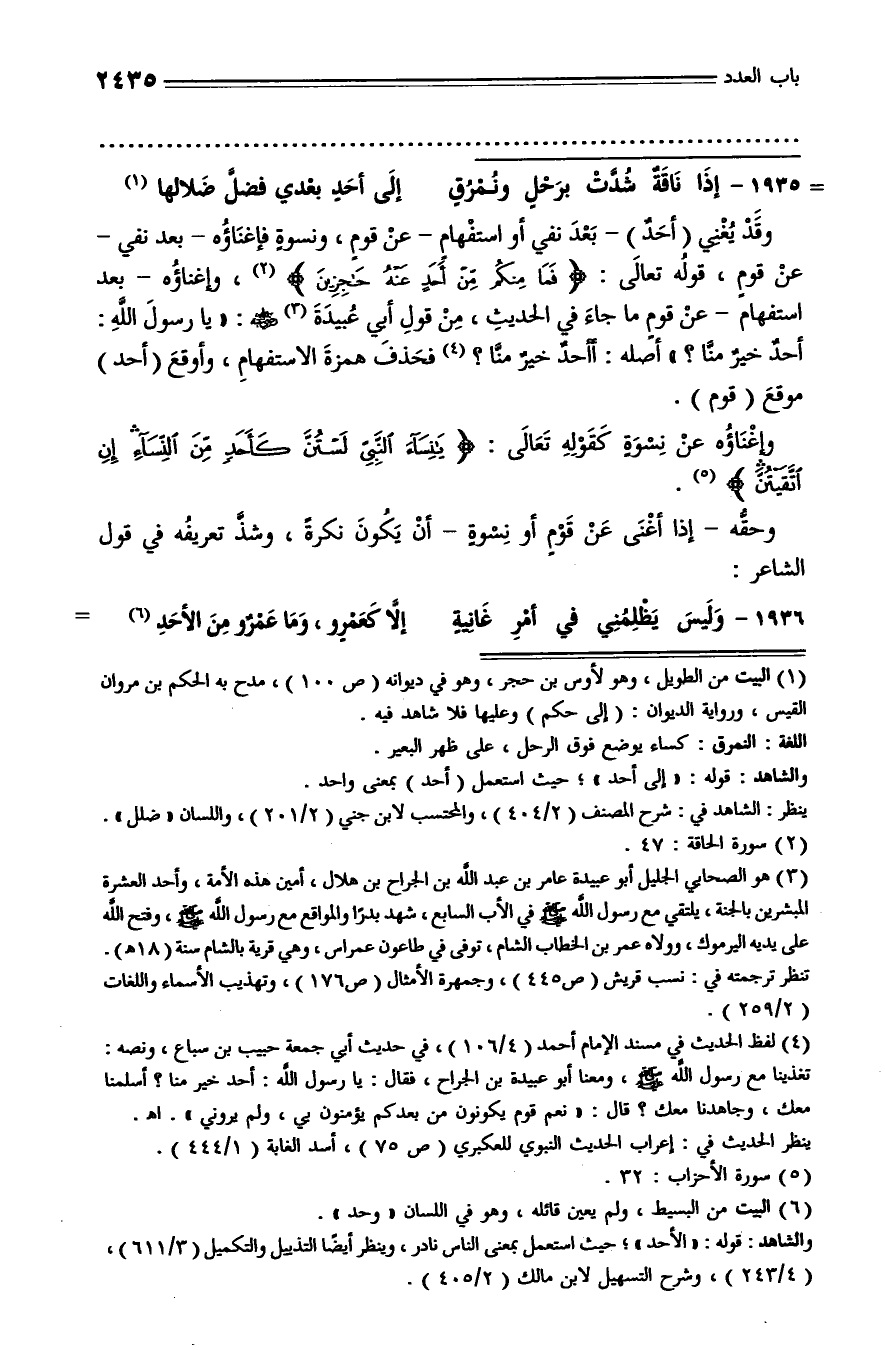 باب العدد ٢٤٣٥
= ١٩٣٥ - إذَا نَاقَةٌ شُدَّتْ برَحْلٍ ونُمْرُقٍ إلَى أحَدٍ بعْدي فضلَّ ضَلالها (١)
وقَدْ يُغْنِي ( أحَدٌ ) – بَعْدَ نفي أو استفْهامٍ – عنْ قومٍ ، ونسوةٍ فإغنَاؤُه – بعد نفي –
عنْ قومٍ ، قولُه تعالَى : ﴿ فَمَا مِنكُم مِّنْ أَحَدٍ عَنْهُ حَٰجِزِينَ ﴾ (٢) ، وإغناؤُه – بعد
استفهام – عنْ قومٍ ما جاءَ في الحديثِ ، مِنْ قولِ أبي عُبيدَةَ (٣) ﷺ : « يا رسولَ اللَّهِ :
أحدٌ خيرٌ منَّا ؟ » أصله : أأحدٌ خيرٌ منَّا ؟ (٤) فحَذفَ همزةَ الاستفهامِ ، وأوقعَ ( أحد )
موقعَ ( قوم ) .
وإغْنَاؤُه عنْ نِسْوَةٍ كَقَوْلِهِ تَعَالَى : ﴿ يَٰنِسَآءَ ٱلنَّبِيِّ لَسْتُنَّ كَأَحَدٍ مِّنَ ٱلنِّسَآءِ إِنِ
ٱتَّقَيْتُنَّ ﴾ (٥) .
وحقُّه – إذا أغْنَى عَنْ قَوْمٍ أو نِسْوةٍ – أنْ يَكُونَ نكرةً ، وشذَّ تعريفُه في قول
الشاعر :
١٩٣٦ - وَلَيسَ يَظْلِمُنِي في أمْرِ غَانِيةٍ إلَّا كَعَمْرٍو ، وَمَا عَمْرٌو مِنَ الأحَدِ (٦) =
(١) البيت من الطويل ، وهو لأوس بن حجر ، وهو في ديوانه ( ص ١٠٠ ) ، مدح به الحكم بن مروان
القيس ، ورواية الديوان : ( إلى حكم ) وعليها فلا شاهد فيه .
اللغة : النمرق : كساء يوضع فوق الرحل ، على ظهر البعير .
والشاهد : قوله : « إلى أحد » ؛ حيث استعمل ( أحد ) بمعنى واحد .
ينظر : الشاهد في : شرح المصنف ( ٤٠٤/٢ ) ، والمحتسب لابن جني ( ٢٠١/٢ ) ، واللسان « ضلل » .
(٢) سورة الحاقة : ٤٧ .
(٣) هو الصحابي الجليل أبو عبيدة عامر بن عبد اللَّه بن الجراح بن هلال ، أمين هذه الأمة ، وأحد العشرة
المبشرين بالجنة ، يلتقي مع رسول اللَّه ﷺ في الأب السابع ، شهد بدرًا والمواقع مع رسول اللَّه ﷺ ، وفتح اللَّه
على يديه اليرموك ، وولاه عمر بن الخطاب الشام ، توفى في طاعون عمراس ، وهي قرية بالشام سنة ( ١٨هـ ) .
تنظر ترجمته في : نسب قريش ( ص٤٤٥ ) ، وجمهرة الأمثال ( ص١٧٦ ) ، وتهذيب الأسماء واللغات
( ٢٥٩/٢ ) .
(٤) لفظ الحديث في مسند الإمام أحمد ( ١٠٦/٤ ) ، في حديث أبي جمعة حبيب بن سباع ، ونصه :
تغذينا مع رسول اللَّه ﷺ ، ومعنا أبو عبيدة بن الجراح ، فقال : يا رسول اللَّه : أحد خير منا ؟ أسلمنا
معك ، وجاهدنا معك ؟ قال : « نعم قوم يكونون من بعدكم يؤمنون بي ، ولم يروني » . اهـ .
ينظر الحديث في : إعراب الحديث النبوي للعكبري ( ص ٧٥ ) ، أسد الغابة ( ٤٤٤/١ ) .
(٥) سورة الأحزاب : ٣٢ .
(٦) البيت من البسيط ، ولم يعين قائله ، وهو في اللسان « وحد » .
والشاهد : قوله : « الأحد » ؛ حيث استعمل بمعنى الناس نادر ، وينظر أيضًا التذييل والتكميل ( ٦١١/٣ ) ،
( ٢٤٣/٤ ) ، وشرح التسهيل لابن مالك ( ٤٠٥/٢ ) .